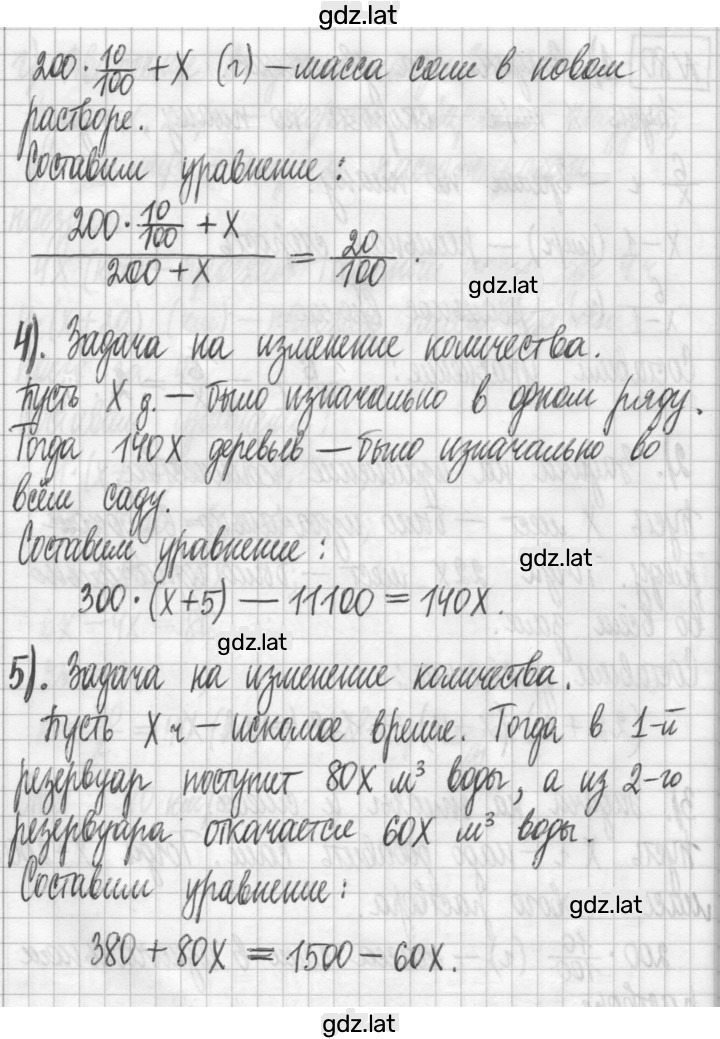 gdz.lat
200 · 10/100 + X (г) — масса соли в новом
растворе.
Составим уравнение:
(200 · 10/100 + X)/(200 + X) = 20/100 .
gdz.lat
4). Задача на изменение количества.
Пусть X д. — было изначально в одном ряду.
Тогда 140X деревьев — было изначально во
всём саду.
Составим уравнение:
gdz.lat
300 · (X+5) — 11100 = 140X.
gdz.lat
5). Задача на изменение количества.
Пусть X ч — искомое время. Тогда в 1-й
резервуар поступит 80X м³ воды, а из 2-го
резервуара откачается 60X м³ воды.
Составим уравнение:
gdz.lat
380 + 80X = 1500 — 60X.
gdz.lat